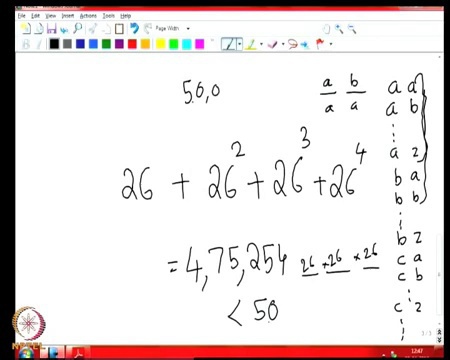 File Edit View Insert Actions Tools Help
Page Width
50,0
a b
a a
26 + 26^2 + 26^3 + 26^4
= 4,75,254
26 * 26 * 26
< 50
a a
a b
⋮
a z
b a
b b
⋮
b z
c a
c b
⋮
c z
⋮
3/3
12:47